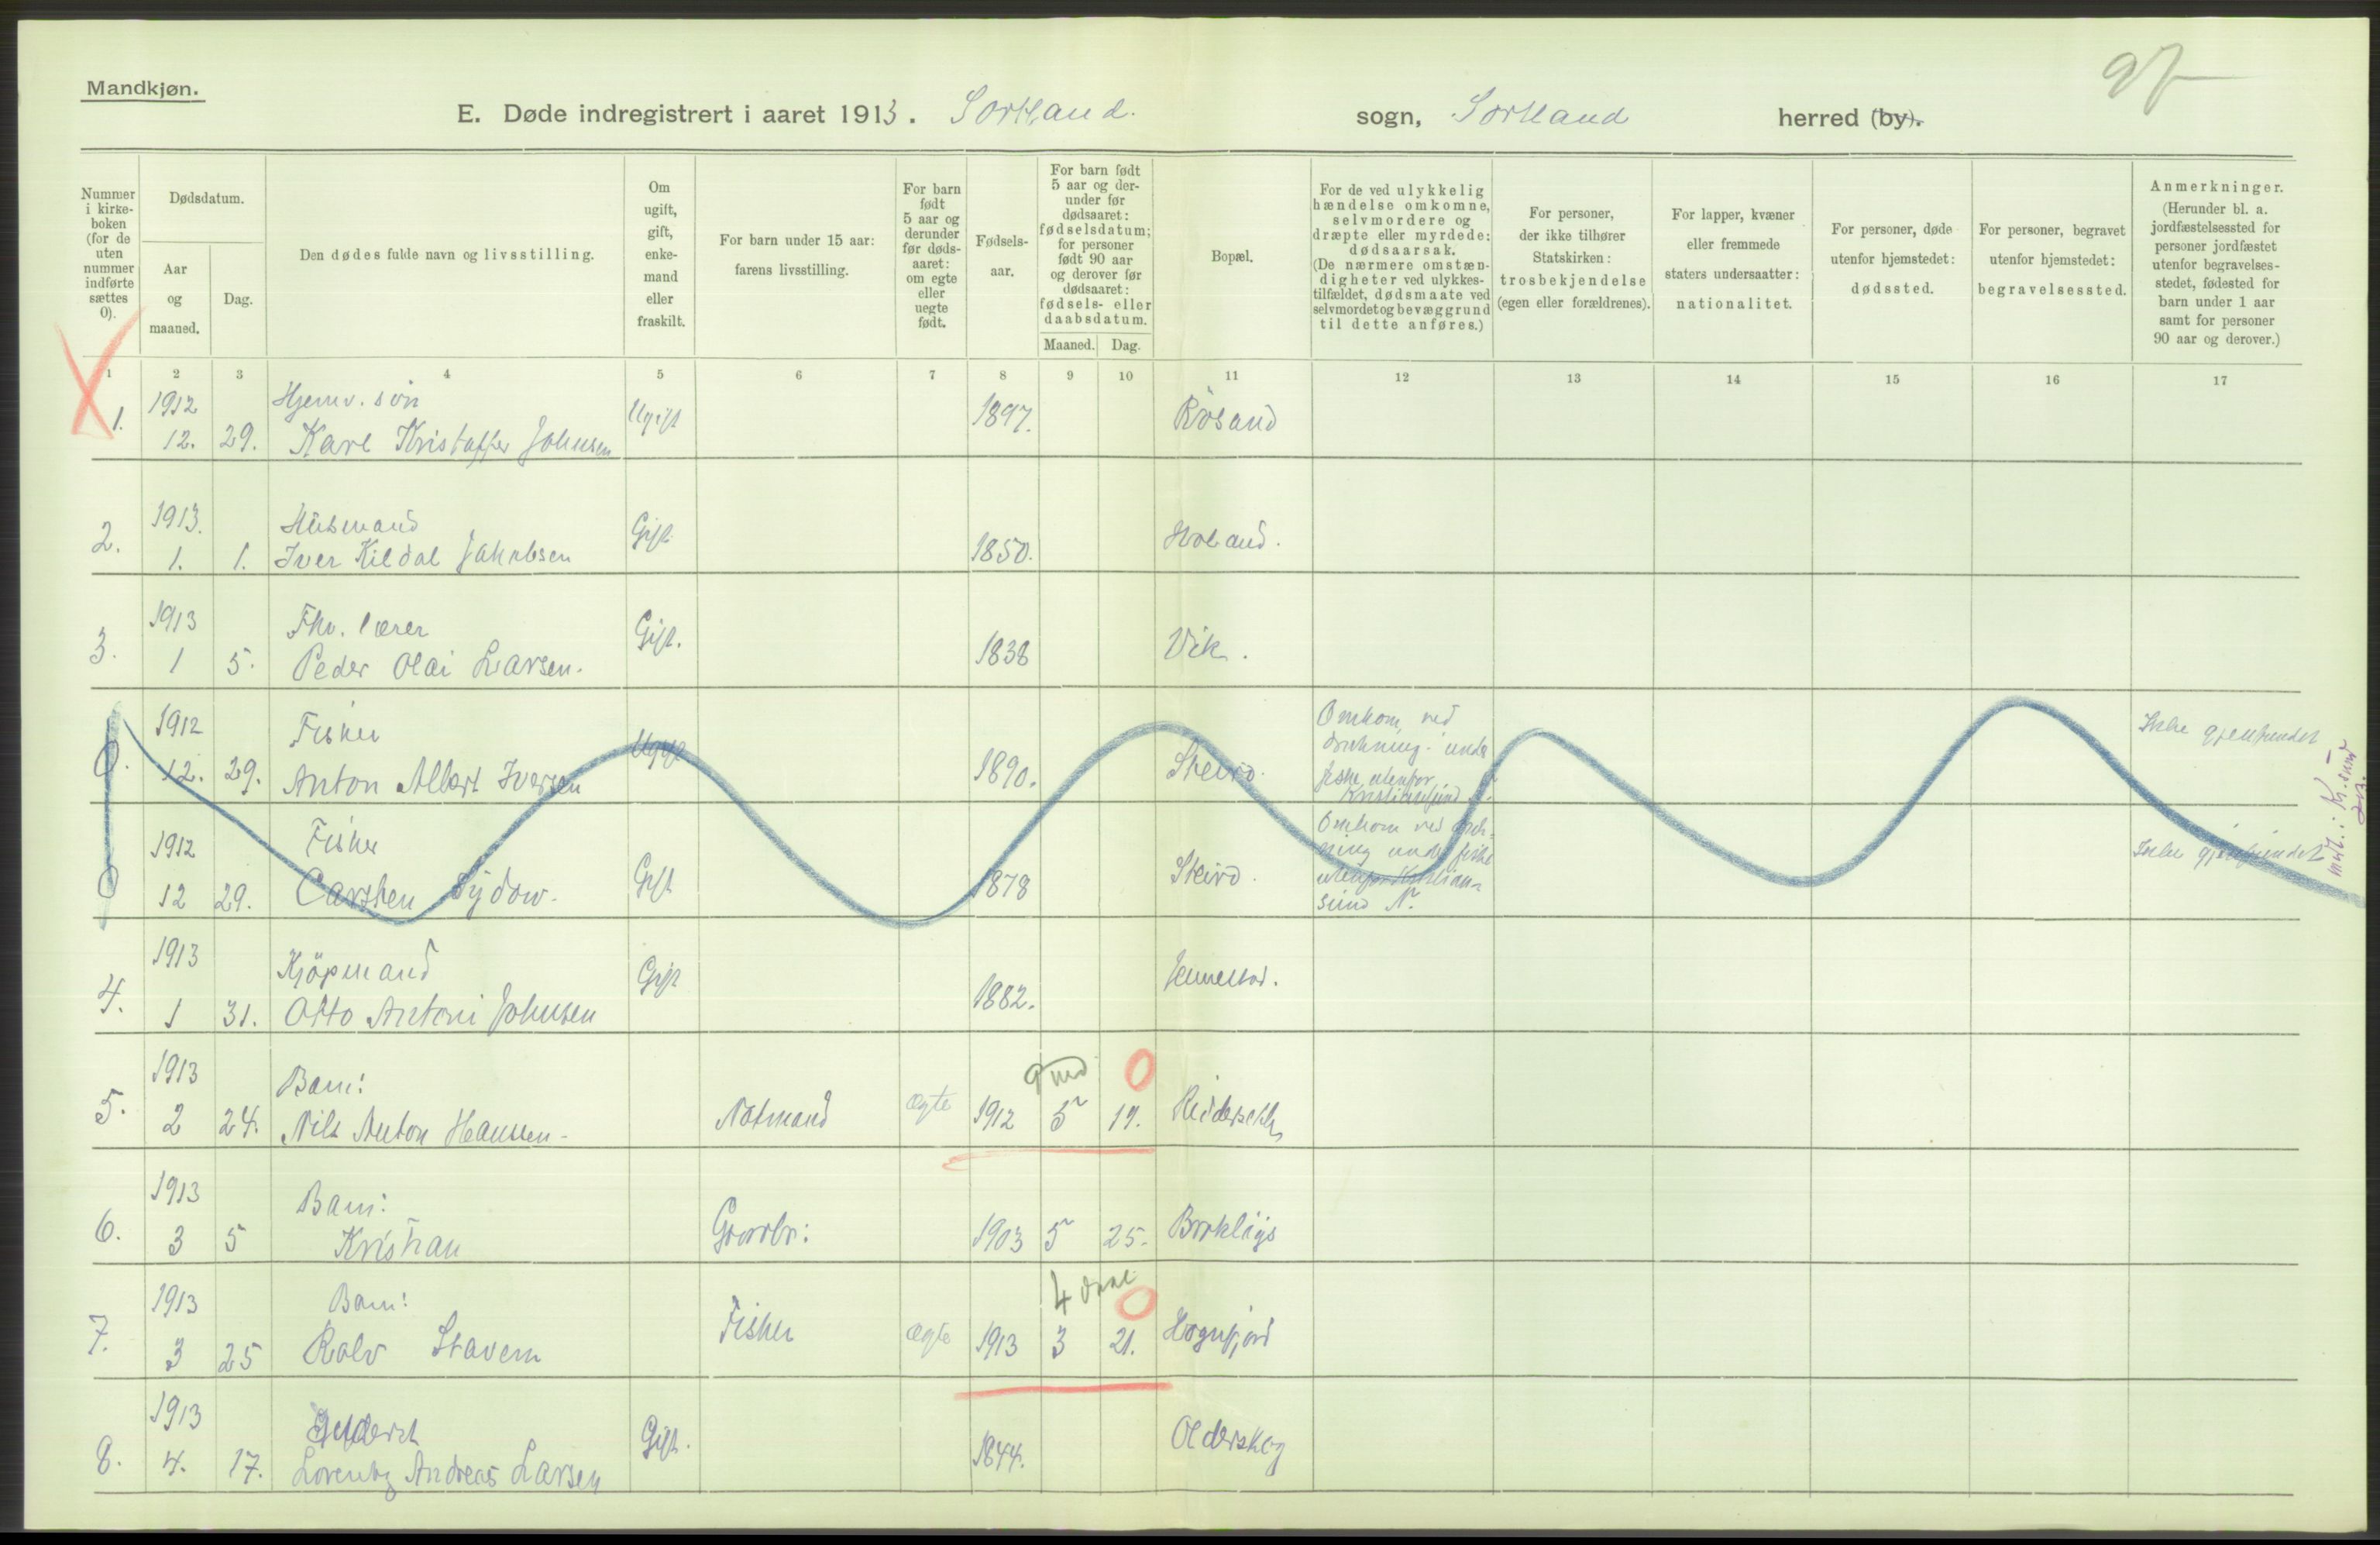 Mandkjøn.
E. Døde indregistrert i aaret 1913. Sortland. sogn, Sortland herred (by).
Nummer i kirkeboken (for de uten nummer indførte sættes 0).
Dødsdatum.
Aar og maaned.
Dag.
Den dødes fulde navn og livsstilling.
Om ugift, gift, enkemand eller fraskilt.
For barn under 15 aar: farens livsstilling.
For barn født 5 aar og derunder før dødsaaret: om egte eller uegte født.
Fødselsaar.
For barn født 5 aar og derunder før dødsaaret: fødselsdatum; for personer født 90 aar og derover før dødsaaret: fødsels- eller daabsdatum.
Maaned. Dag.
Bopæl.
For de ved ulykkelig hændelse omkomne, selvmordere og dræpte eller myrdede: dødsaarsak. (De nærmere omstændigheter ved ulykkestilfældet, dødsmaate ved selvmordet og bevæggrund til dette anføres.)
For personer, der ikke tilhører Statskirken: trosbekjendelse (egen eller forældrenes).
For lapper, kvæner eller fremmede staters undersaatter: nationalitet.
For personer, døde utenfor hjemstedet: dødssted.
For personer, begravet utenfor hjemstedet: begravelsessted.
Anmerkninger. (Herunder bl. a. jordfæstelsessted for personer jordfæstet utenfor begravelsesstedet, fødested for barn under 1 aar samt for personer 90 aar og derover.)
1 2 3 4 5 6 7 8 9 10 11 12 13 14 15 16 17
1912 Hjemv. søn Ugift 1897. Rösand
1. 12. 29. Karl Kristoffer Johnsen
1913. Husmand Gift
2. 1. 1. Iver Kildal Jakobsen 1850. Holand.
1913 Fhv. lærer Gift.
3. 1 5. Peder Olai Larsen. 1838 Vik.
1912 Fisker Ugift Omkom ved Ikke gjenfundet
0. 12. 29. Anton Albert Iversen 1890. Steiro. drukning under
fiske utenfor
Kristiansund N.
1912 Fisker Gift Omkom ved druk-
0 12 29. Carsten Sydow. 1878 Steiro. ning under fiske Ikke gjenfundet
utenfor Kristian-
sund N.
1913 Kjöpmand Gift
4. 1 31. Otto Antoni Johnsen 1882. Jennestad.
1913 Barn: 9 md 0
5. 2 24. Nils Anton Hansen - Notmand Ægte 1912 5 19.
1913 Barn:
6. 3 5 Kristian Gaardbr: 1903 5 25.
1913 Barn: 4 dage 0
7. 3 25 Rolv Stavem Fisker Ægte 1913 3 21. Hognfjord
1913 Gift.
8. 4. 17. Lorentz Andreas Larsen 1844. Olderskog